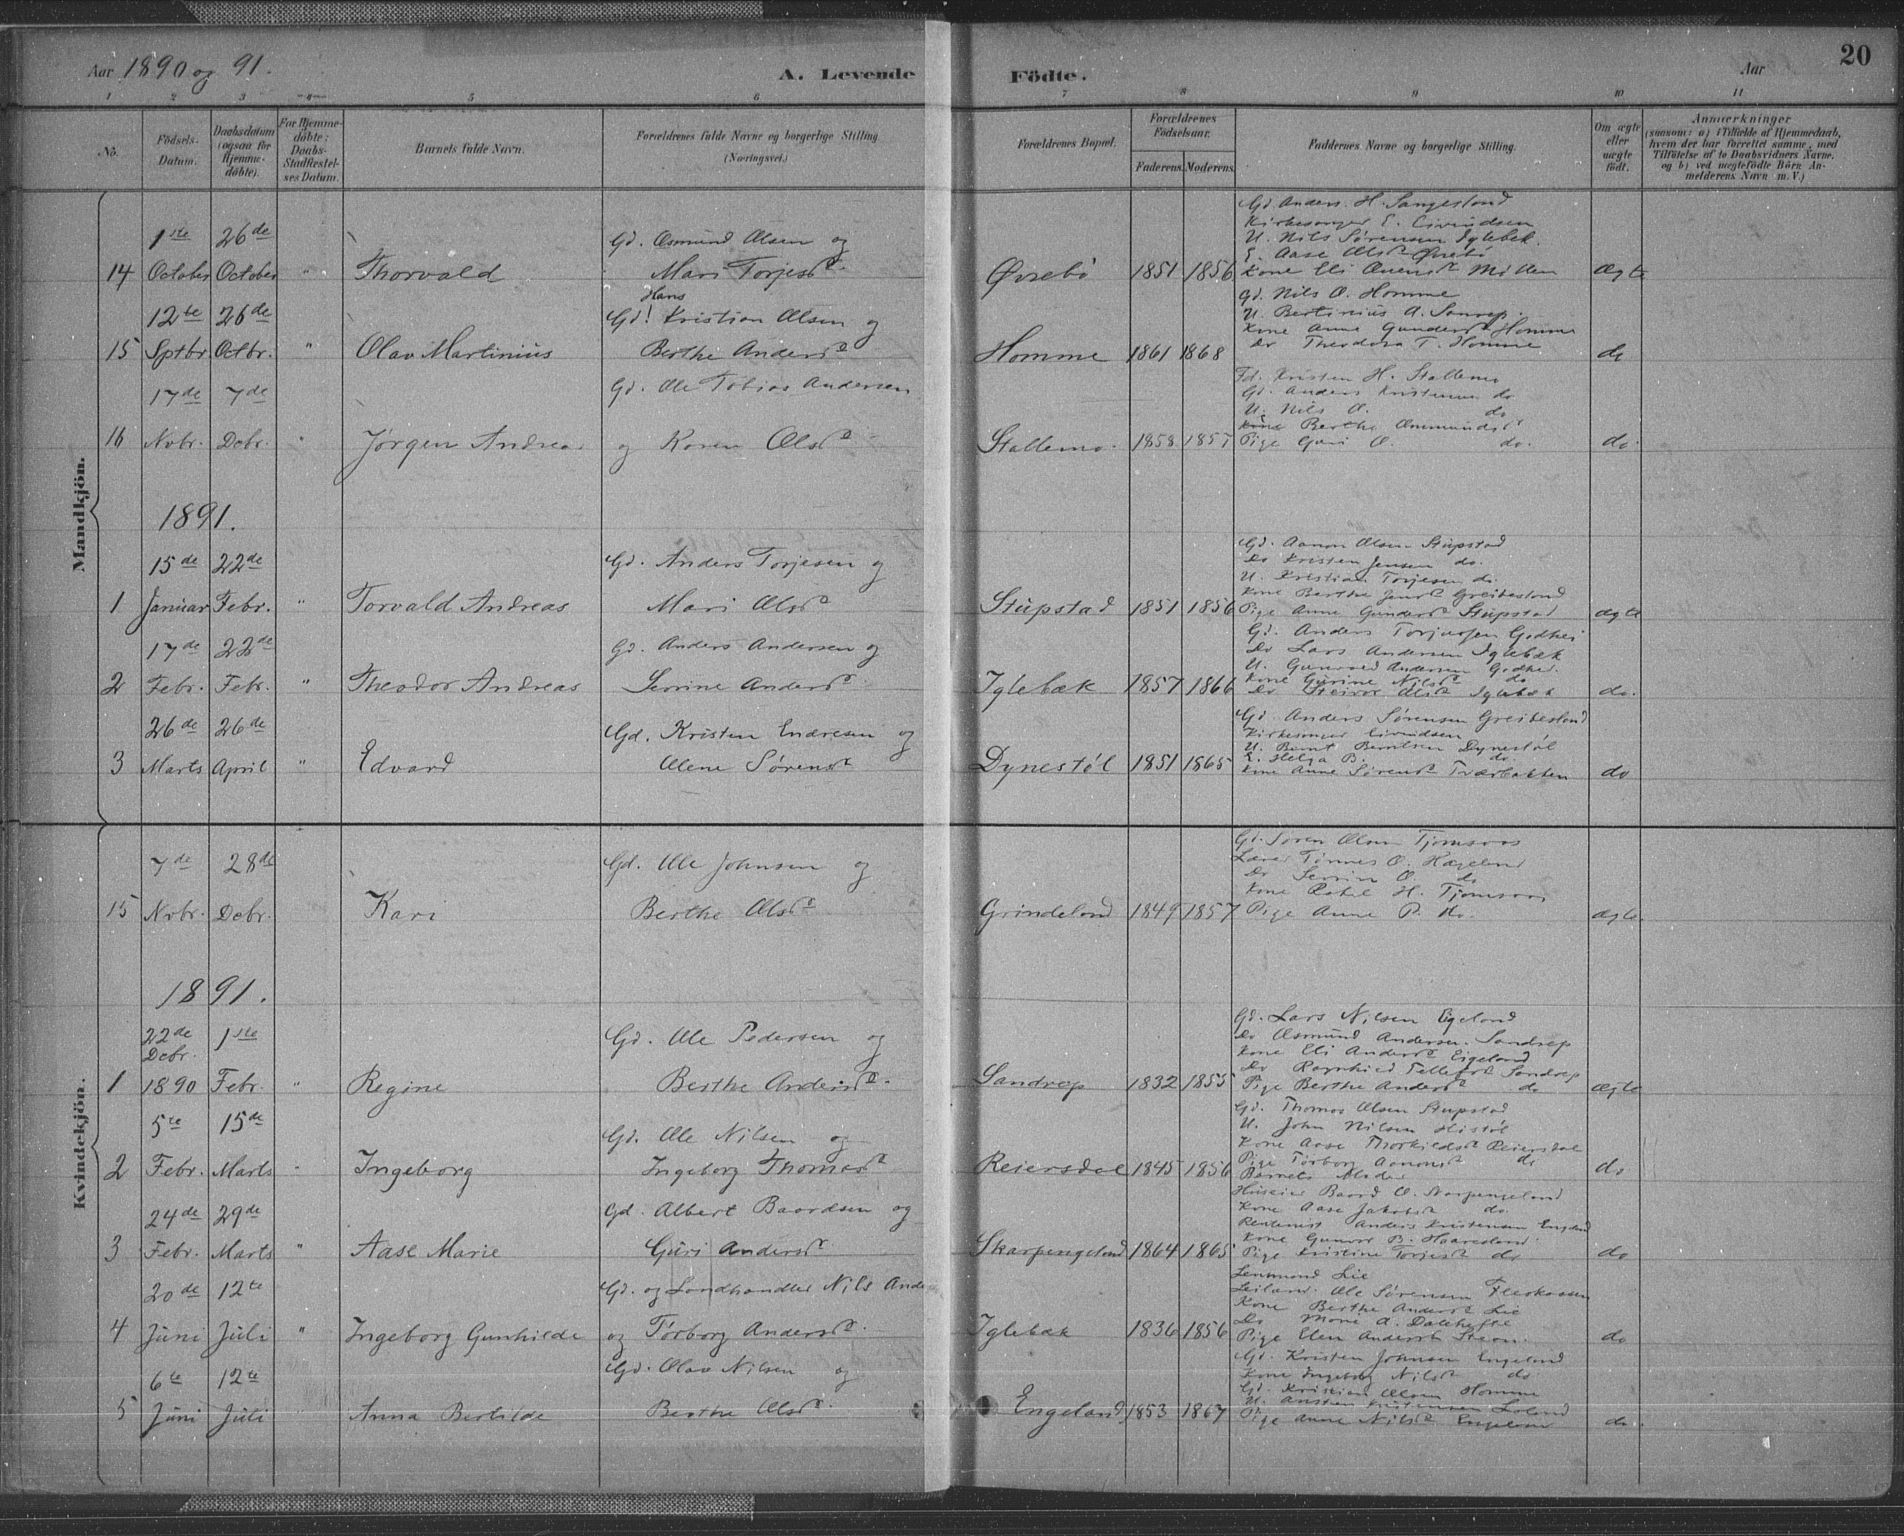 Aar 1890 og 91.
A. Levende Födte.
Aar
20
1 2 3 4 5 6 7 8 9 10 11
No.
Födsels-Datum.
Daabsdatum (ogsaa for Hjemme-döbte).
For Hjemme-döbte; Daabs-Stadfæstel-ses Datum.
Barnets fulde Navn.
Forældrenes fulde Navne og borgerlige Stilling (Næringsvei.)
Forældrenes Bopæl.
Forældrenes Födselsaar.
Faderens. Moderens.
Faddernes Navne og borgerlige Stilling.
Om ægte eller uægte födt.
Anmærkninger
(saasom: a) i Tilfælde af Hjemmedaab, hvem der har forrettet samme, med Tilföielse af to Daabsvidners Navne, og b) ved uægtefödte Börn An-melderens Navn m. V.)
Mandkjön.
14 1ste October 26de October " Thorvald
Gd. Asmund Olsen og
Mari Torjesd.
Øvrebö 1851 1856
Gd. Anders H. Sangesland
Kirkesanger E. Eivindsen
U. Nils Sørensen Iglebæk
E. Aase Olsd. Øvrebö
Kone Eli
Ægte
15 12te Sptbr. 26de Octbr. " Olav Martinius
Hans
Gd. Kristian Olsen og
Berthe Andersd.
Homme 1861 1868
Gd. Nils O. Homme
U. Bertinius A.
Kone Anne Gundersd. Homme
Do Theodora T. Homme
do
16 17de Novbr. 7de Decbr. " Jørgen Andreas
Gd. Ole Tobias Andersen
og Karen Olsd.
Stallemo 1858 1857
Fd. Kristen H. Stallemo
Gd. Anders Kristensen do
U. Nils O. do
Kone Berthe
Pige Guri O. do.
do.
1891.
1 15de Januar 22de Febr. " Torvald Andreas
Gd. Anders Torjesen og
Mari Olsd.
Stupstad 1851 1856
Gd. Aanon Olsen Stupstad
Do Kristen Jensen do.
U. Kristian Torjesen do.
Kone Berthe Jensd. Greibesland
Pige Anne Gundersd. Stupstad
ægte
2 17de Febr. 22de Febr. " Theodor Andreas
Gd. Anders Andersen og
Serine Andersd.
Iglebæk 1857 1866
Gd. Anders Torjussen
Do Lars Andersen Iglebæk
U. Gunvald Andersen
Kone Gurine Nilsd. do
Do Steinor Olsd. Iglebæk
do.
3 26de Marts 26de April " Edvard
Gd. Kristen Endresen og
Olene Sørensd.
Dynestøl 1851 1865
Gd. Anders Sørensen Greibesland
Kirkesanger Eivindsen
U. Bernt Berntsen Dynestøl
E. Helga B. do.
Kone Anne Sørensd. Tværbakken
do
Kvindekjön.
15 7de Novbr. 28de Decbr. Kari
Gd. Ole Johnsen og
Berthe Olsd.
Grindeland 1849 1857
Gd. Søren Olsen Tjomsaas
Lærer Tønnes O. Hægeland
Do Serine O. do
Kone Rakel H. Tjomsaas
Pige Anne P. do.
ægte.
1891.
1 22de Decbr. 1890 1ste Febr. " Regine
Gd. Ole Pedersen og
Berthe Andersd.
Sandrep 1832 1855
Gd. Lars Nilsen Egeland
Do Osmund Andersen Sandrep
Kone Eli Andersd. Eigeland
Do Ragnhild Tellefsd. Sandrep
Pige Berthe Andersd. do
ægte
2 5te Febr. 15de Marts " Ingeborg
Gd. Ole Nilsen og
Ingeborg Thomasd.
Reiersdal 1845 1856
Gd. Thomas Olsen Stupstad
U. John Nilsen Histøl
Kone Aase Thorkildsd. Reiersdal
Pige Torborg Aanonsd. do
Barnets Moder
do
3 24de Febr. 29de Marts " Aase Marie
Gd. Albert Baardsen og
Guri Andersd.
Skarpengeland 1864 1865
Huseier Baard O. Skarpengeland
Kone Aase Jakobsd. do.
Rentenist Anders Kristensen Engeland
Kone Gunvor B.
Pige Kristine Torjesd. do
do
4 20de Juni 12te Juli " Ingeborg Gunhilde
Gd. og Landhandler Nils Anders
og Torborg Andersd.
Iglebæk 1836 1856
Lensmand Lie
Leiland. Ole Sørensen
Kone Berthe Andersd. Lie
Do A.
Pige Elen Andersd. Steen.
do
5 6te Juni 12te Juli Anna Bertilde
Gd. Olav Nilsen og
Berthe Olsd.
Engeland 1853 1867
Gd. Kristen Johnsen Engeland
Kone Ingeborg Nilsd. do
Gd. Kristian Olsen Homme
U. Kristensen
Pige Anne Nilsd. Engeland
do.